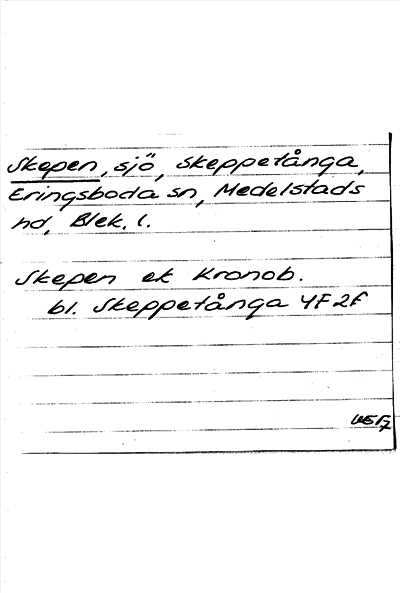 Skepen, sjö, Skeppetånga,
Eringsboda sn, Medelstads
hd, Blek. l.
Skepen ek Kronob.
bl. Skeppetånga 4F2f